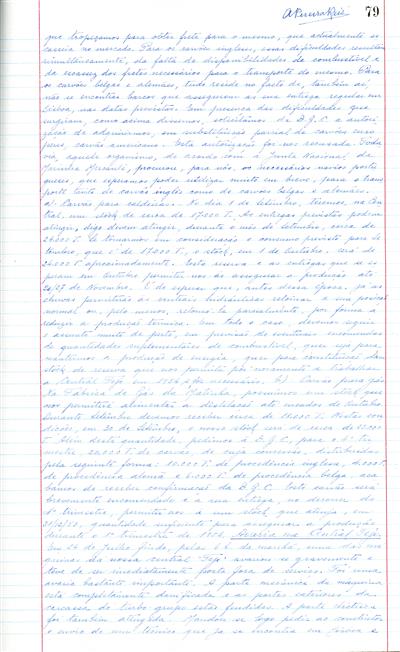 79
que tropeçamos para obter frete para o mesmo, que actualmente se
carvões no mercado. Para os carvões ingleses, essas dificuldades resultam
simultâneamente, da falta de disponibilidades de combustível e
da escassez dos fretes necessários para o transporte do mesmo. Para
os carvões belgas e alemães, tudo reside no facto de, também ai,
não se encontrar barcos que assegurem as suas entregas regulares em
Lisboa, nas datas previstas. Em presença das dificuldades que
surgiam, como acima dissemos, solicitámos da D.G.C. a autori-
zação de adquirirmos, em substituição parcial de carvões ingle-
ses, carvões americanos. Esta autorização foi-nos recusada. Toda-
via, aquele organismo, de acordo com a Junta Nacional da
Marinha Mercante, procurou, para nós, os necessários navios portu-
gueses, que esperamos poder utilizar muito em breve, para o trans-
porte tanto de carvão inglês como de carvões belgas e alemães.
a) Carvão para caldeiras. No dia 1 de Setembro, tivemos, na Cen-
tral, um stock de cerca de 17.000 T. As entregas previstas podem
atingir, digo devem atingir, durante o mês de Setembro, cerca de
24.000 T. Se tomarmos em consideração o consumo previsto para Se-
tembro, que é de 17.000 T., o stock, em 1 de Outubro, será de
24.000 T aproximadamente. Esta reserva e as entregas que se es-
peram em Outubro permitem-nos de assegurar a produção até
26/27 de Novembro. É de esperar que, antes dessa época, já as
chuvas permitirão às centrais hidráulicas retomar a sua posição
normal ou, pelo menos, retomá-la parcialmente, por forma a
reduzir a produção térmica. Em todo o caso, devemos seguir
o assunto muito de perto, em previsão de eventuais encomendas
de quantidades suplementares de combustível, quer seja para
mantermos a produção de energia, quer para constituição dum
stock de reserva que nos permita pôr novamente a trabalhar
a Central Tejo em 1954 se fôr necessário. b) Carvão para gás.
Na Fábrica de Gás da Matinha, possuímos um stock que
nos permitirá alimentar a distilação até meados de Outubro.
Durante Setembro devemos receber cerca de 18.000 T. Nestas con-
dições, em 30 de Setembro, o nosso stock será de cerca de
T. Além desta quantidade, pedimos à D.G.C., para o 4º tri-
mestre, 20.000 T. de carvão, de cuja concessão, distribuídas
pela seguinte forma: 10.000 T. de procedência inglesa, 4.000 T.
de procedência alemã e 6.000 T. de procedência belga, aca-
bamos de receber confirmação da D.G.C. Este carvão será
brevemente encomendado e a sua entrega, no decorrer do
4º trimestre, permitir-nos-á um stock que atinja, em
31/12/53, quantidade suficiente para assegurar a produção
durante o 1º trimestre de 1954. Avaria na Central Tejo.
Em 24 de Julho findo, pelas 6 h. da manhã, uma das má-
quinas da nossa central Tejo avariou-se gravemente e
teve de ser imediatamente posta fora de serviço. Foi uma
avaria bastante importante. A parte mecânica da máquina
está completamente danificada e as partes exteriores da
carcassa do turbo grupo estão fundidas. A parte eléctrica
foi também atingida. Mandou-se logo pedir ao construtor
o envio de um técnico que já se encontra em Lisboa e